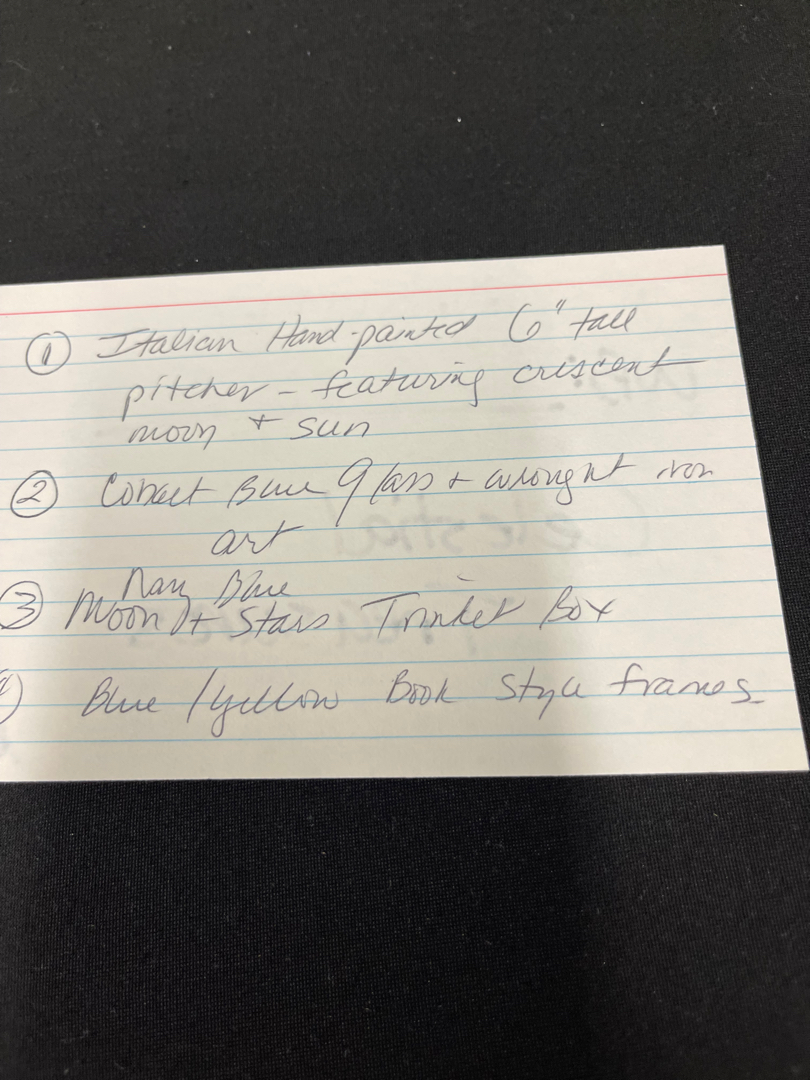 ① Italian Hand-painted 6" tall
pitcher - featuring crescent
moon + sun
② Cobalt Blue Glass + wrought iron
art
Navy Blue
③ Moon + Stars Trinket Box
Blue / yellow Book Style frames